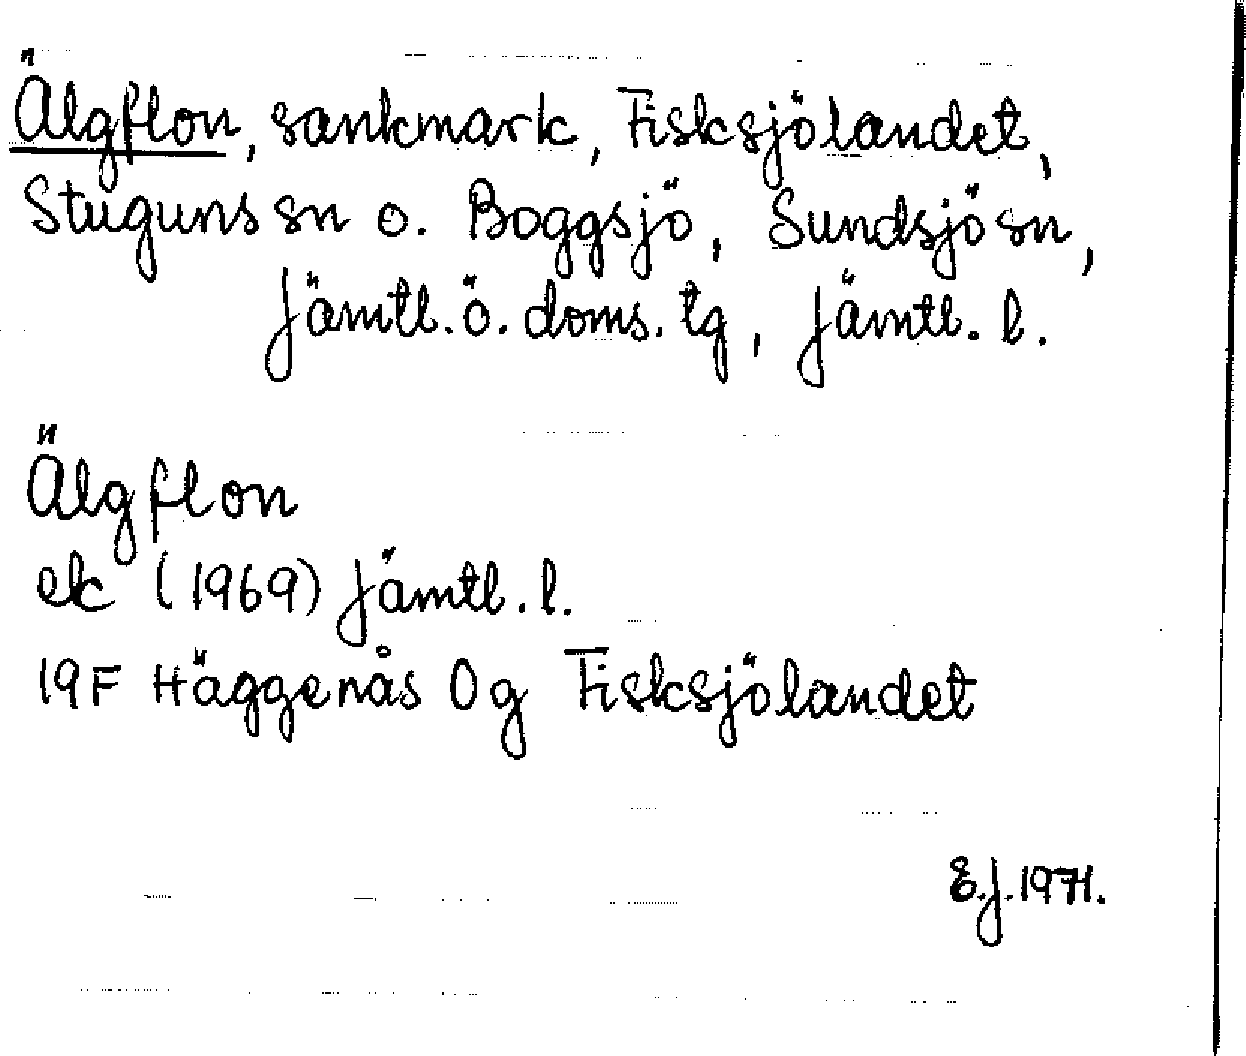 Älgflon, sankmark, Fisksjölandet,
Stuguns sn o. Boggsjö, Sundsjö sn,
Jämtl. ö. doms. tg, Jämtl. l.
Älgflon
ek (1969) Jämtl. l.
19F Häggenås 0g Fisksjölandet
E.J. 1971.